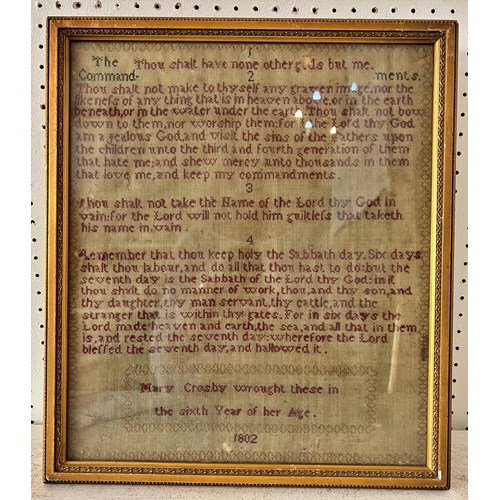 1
The Thou shalt have none other gods but me.
Command- 2 ments.
Thou shalt not make to thyself any graven image, nor the
likenefs of any thing that is in heaven above, or in the earth
beneath, or in the water under the earth. Thou shalt not bow
down to them, nor worship them: for the Lord thy God
am a jealous God, and visit the sins of the fathers upon
the children unto the third and fourth generation of them
that hate me: and shew mercy unto thousands in them
that love me, and keep my commandments.
3
Thou shalt not take the Name of the Lord thy God in
vain: for the Lord will not hold him guiltlefs that taketh
his name in vain.
4
Remember that thou keep holy the Sabbath day. Six days
shalt thou labour, and do all that thou hast to do: but the
seventh day is the Sabbath of the Lord thy God: in it
thou shalt do no manner of work, thou, and thy son, and
thy daughter, thy man servant, thy cattle, and the
stranger that is within thy gates. For in six days the
Lord made heaven and earth, the sea, and all that in them
is, and rested the seventh day: wherefore the Lord
blefsed the seventh day, and hallowed it.
Mary Crosby wrought these in
the sixth Year of her Age.
1802